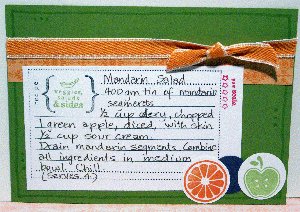 Mandarin Salad
veggies,
salads
& sides
400 gm tin of mandarin
segments
½ cup celery, chopped
1 green apple, diced, with skin
½ cup sour cream.
Drain mandarin segments. Combine
all ingredients in medium
bowl. Chill.
(Serves 4)